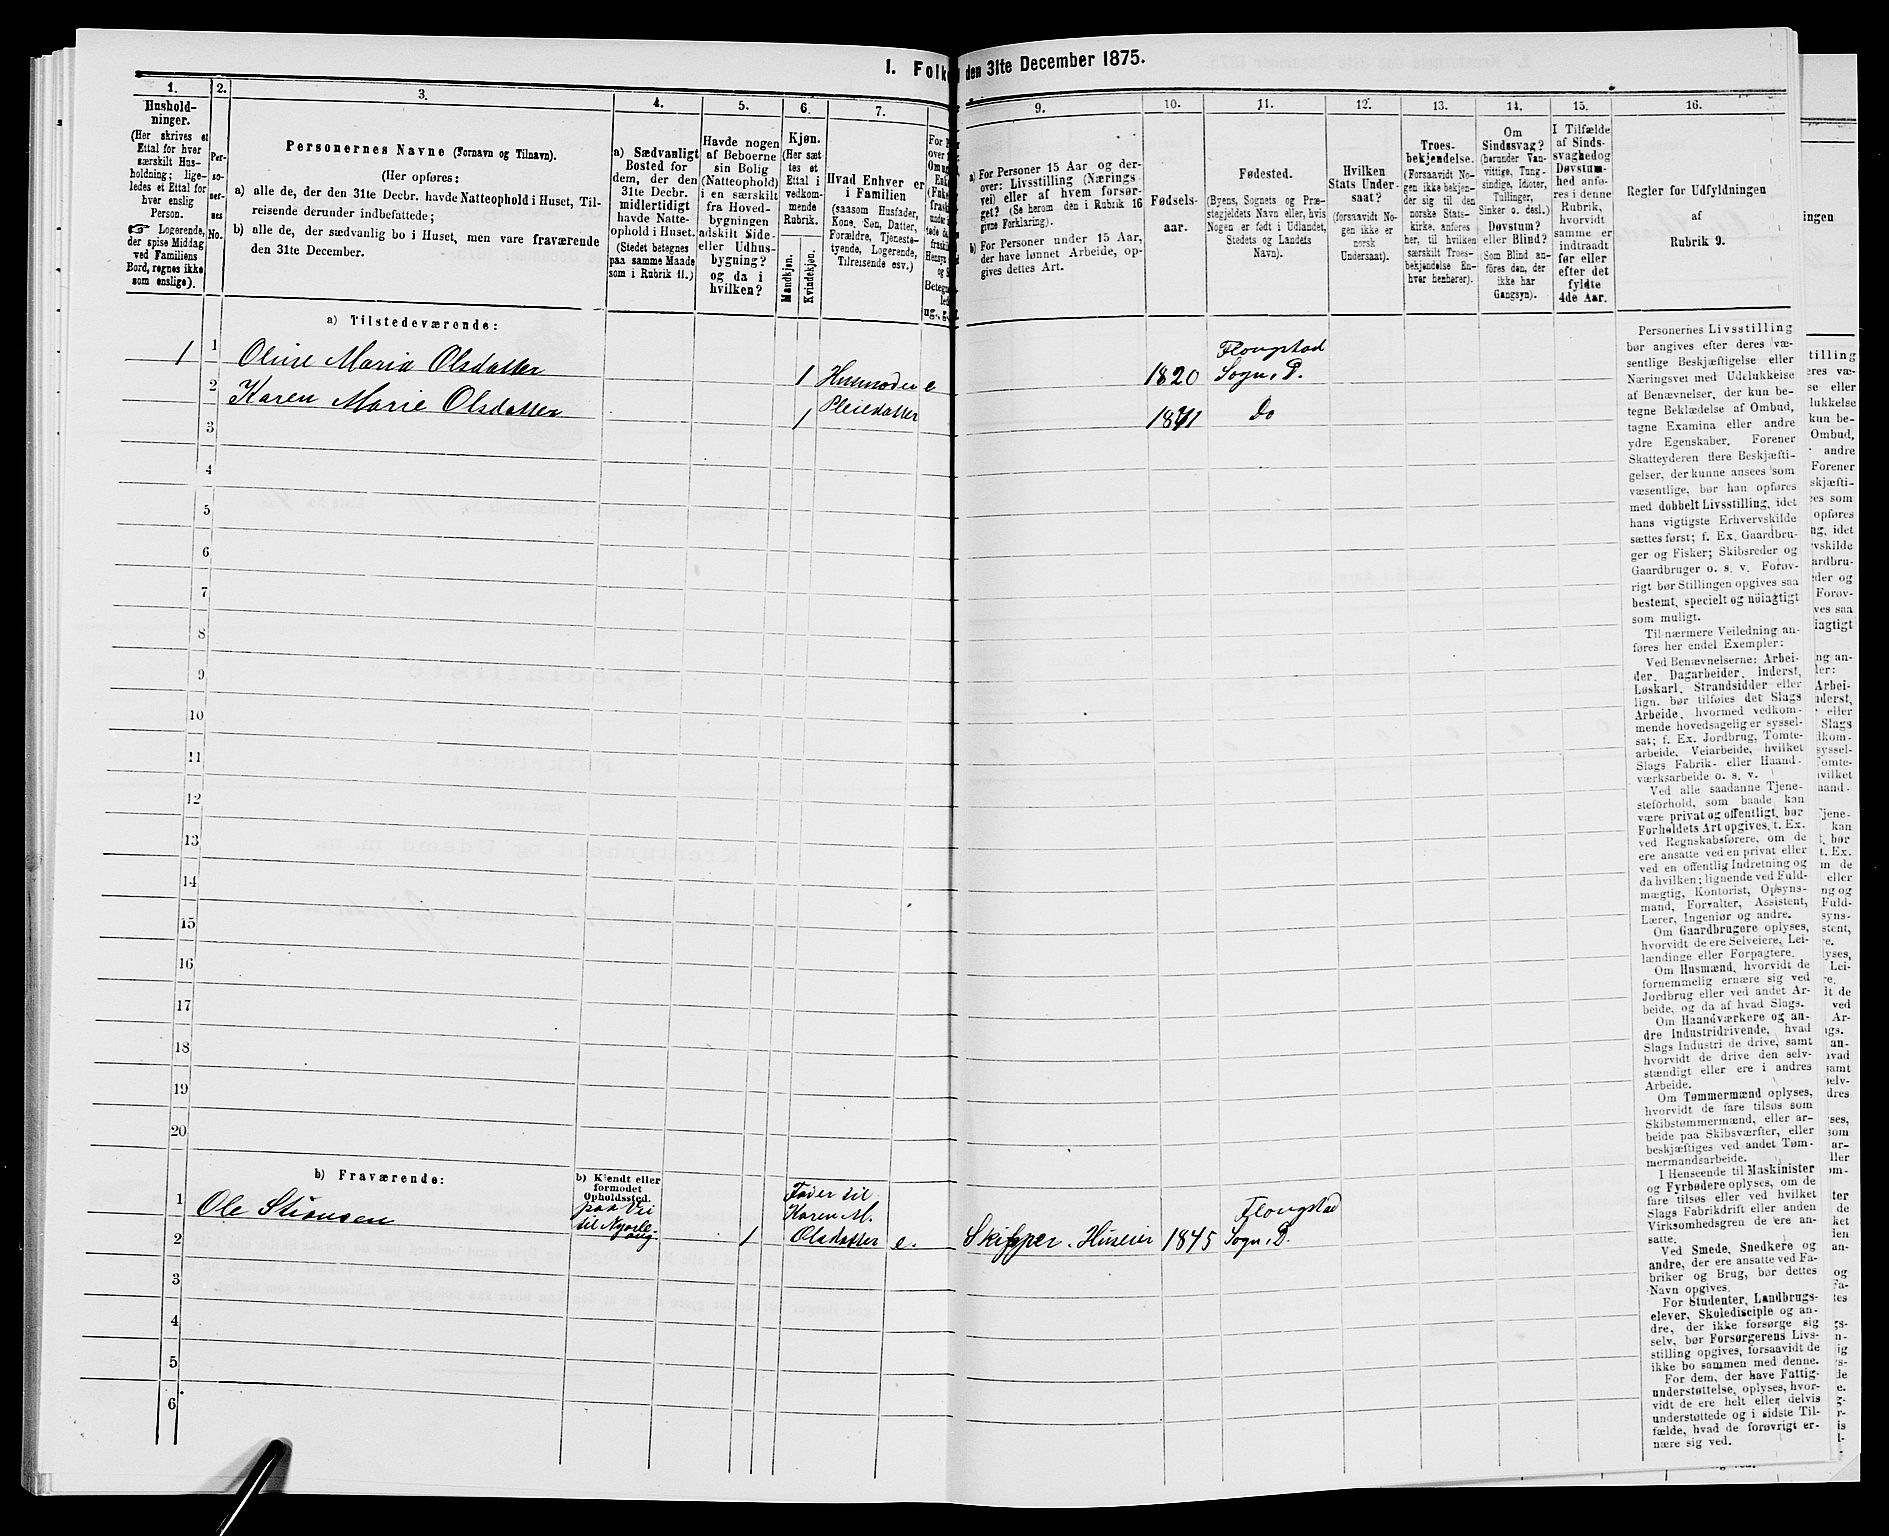 1. Folk
den 31te December 1875.
1.
Hushold-
ninger.
(Her skrives et
Ettal for hver
særskilt Hus-
holdning; lige-
ledes et Ettal for
hver enslig
Person.
☞ Logerende,
der spise Middag
ved Familiens
Bord, regnes ikke
som enslige).
2.
Per-
so-
ner-
nes
No.
3.
Personernes Navne (Fornavn og Tilnavn).
(Her opføres:
a) alle de, der den 31te Decbr. havde Natteophold i Huset, Til-
reisende derunder indbefattede;
b) alle de, der sædvanlig bo i Huset, men vare fraværende
den 31te December.
4.
a) Sædvanligt
Bosted for
dem, der den
31te Decbr.
midlertidigt
havde Natte-
ophold i Huset.
(Stedet betegnes
paa samme Maade
som i Rubrik 11.)
5.
Havde nogen
af Beboerne
sin Bolig
(Natteophold)
i en særskilt
fra Hoved-
bygningen
adskilt Side-
eller Udhus-
bygning?
og da i
hvilken?
6.
Kjøn.
(Her sæt-
tes et
Ettal i
vedkom-
mende
Rubrik.
Mandkjøn.
Kvindekjøn.
7.
Hvad Enhver er
i Familien
(saasom Husfader,
Kone, Søn, Datter,
Forældre, Tjeneste-
tyende, Logerende,
Tilreisende osv.)
9.
a) For Personer 15 Aar og der-
over: Livsstilling (Nærings-
vei) eller af hvem forsør-
get? (Se herom den i Rubrik 16
givne Forklaring).
b) For Personer under 15 Aar,
der have lønnet Arbeide, op-
gives dettes Art.
10.
Fødsels-
aar.
11.
Fødested.
(Byens, Sognets og Præ-
stegjeldets Navn eller, hvis
Nogen er født i Udlandet,
Stedets og Landets
Navn).
12.
Hvilken
Stats Under-
saat?
(forsaavidt No-
gen ikke er
norsk
Undersaat).
13.
Troes-
bekjendelse.
(Forsaavidt No-
gen ikke bekjen-
der sig til den
norske Stats-
kirke, anføres
her, til hvilken
særskilt Troes-
bekjendelse En-
hver henhører).
14.
Om
Sindssvag?
(herunder Van-
vittige, Tung-
sindige, Idioter,
Tullinger,
Sinker o. desl.)
Døvstum?
eller Blind?
(Som Blind an-
føres den, der
ikke har
Gangsyn).
15.
I Tilfælde
af Sinds-
svaghed og
Døvstum-
hed anfø-
res i denne
Rubrik,
hvorvidt
samme er
indtraadt
før eller
efter det
fyldte
4de Aar.
16.
Regler for Udfyldningen
af
Rubrik 9.
a) Tilstedeværende:
1 1 Oline Maria Olsdatter 1 Husmoder e 1820 Flougstad Sogn, P.
2 Karen Marie Olsdatter 1 Pleiedatter 1871 Do
3
4
5
6
7
8
9
10
11
12
13
14
15
16
17
18
19
20
b) Fraværende:
b) Kjendt eller
formodet
Opholdssted.
1 Ole Stiansen paa Vei til 1 Fader til Karen M. Olsdatter e. Skipper, Huseier 1845 Flougstad Sogn, P.
2
3
4
5
6
Personernes Livsstilling
bør angives efter deres væ-
sentlige Beskjæftigelse eller
Næringsvei med Udelukkelse
af Benævnelser, der kun be-
tegne Beklædelse af Ombud,
tagne Examina eller andre
ydre Egenskaber. Forener
Skatteyderen flere Beskjæfti-
gelser, der kunne ansees som
væsentlige, bør han opføres
med dobbelt Livsstilling, idet
hans vigtigste Erhvervskilde
sættes først; f. Ex. Gaardbru-
ger og Fisker; Skibsreder og
Gaardbruger o. s. v. Forøv-
rigt bør Stillingen opgives saa
bestemt, specielt og nöiagtigt
som muligt.
Til nærmere Veiledning an-
føres her endel Exempler:
Ved Benævnelserne: Arbei-
der, Dagarbeider, Inderst,
Løskarl, Strandsidder eller
lign. bør tilføies det Slags
Arbeide, hvormed vedkom-
mende hovedsagelig er syssel-
sat; f. Ex. Jordbrug, Tomte-
arbeide, Veiarbeide, hvilket
Slags Fabrik- eller Haand-
værksarbeide o. s. v.
Ved alle saadanne Tjene-
steforhold, som baade kan
være privat og offentligt, bør
Forholdets Art opgives, t. Ex.
ved Regnskabsførere, om de
ere ansatte ved en privat eller
ved en offentlig Indretning og
da hvilken; lignende ved Fuld-
mægtig, Kontorist, Opsyns-
mand, Forvalter, Assistent,
Lærer, Ingeniør og andre.
Om Gaardbrugere oplyses,
hvorvidt de ere Selveiere, Lei-
lændinge eller Forpagtere.
Om Husmænd, hvorvidt de
fornemmelig ernære sig ved
Jordbrug eller ved andet Ar-
beide, og da af hvad Slags.
Om Haandværkere og an-
dre Industridrivende, hvad
Slags Industri de drive, samt
hvorvidt de drive den selv-
stændigt eller ere i andres
Arbeide.
Om Tømmermænd oplyses,
hvorvidt de fare tilsøs som
Skibstømmermænd, eller ar-
beide paa Skibsværfter, eller
beskjæftiges ved andet Tøm-
mermandsarbeide.
I Henseende til Maskinister
og Fyrbødere oplyses, om de
fare tilsøs eller ved hvilket
Slags Fabrikdrift eller anden
Virksomhedsgren de ere an-
satte.
Ved Smede, Snedkere og
andre, der ere ansatte ved Fa-
briker og Brug, bør dettes
Navn opgives.
For Studenter, Landbrugs-
elever, Skoledisciple og an-
dre, der ikke forsørge sig
selv, bør Forsørgerens Livs-
stilling opgives, forsaavidt de
ikke bo sammen med denne.
For dem, der have Fattig-
understøttelse, oplyses, hvor-
vidt de ere helt eller delvis
understøttede og i sidste Til-
fælde, hvad de forøvrigt er-
nære sig ved.